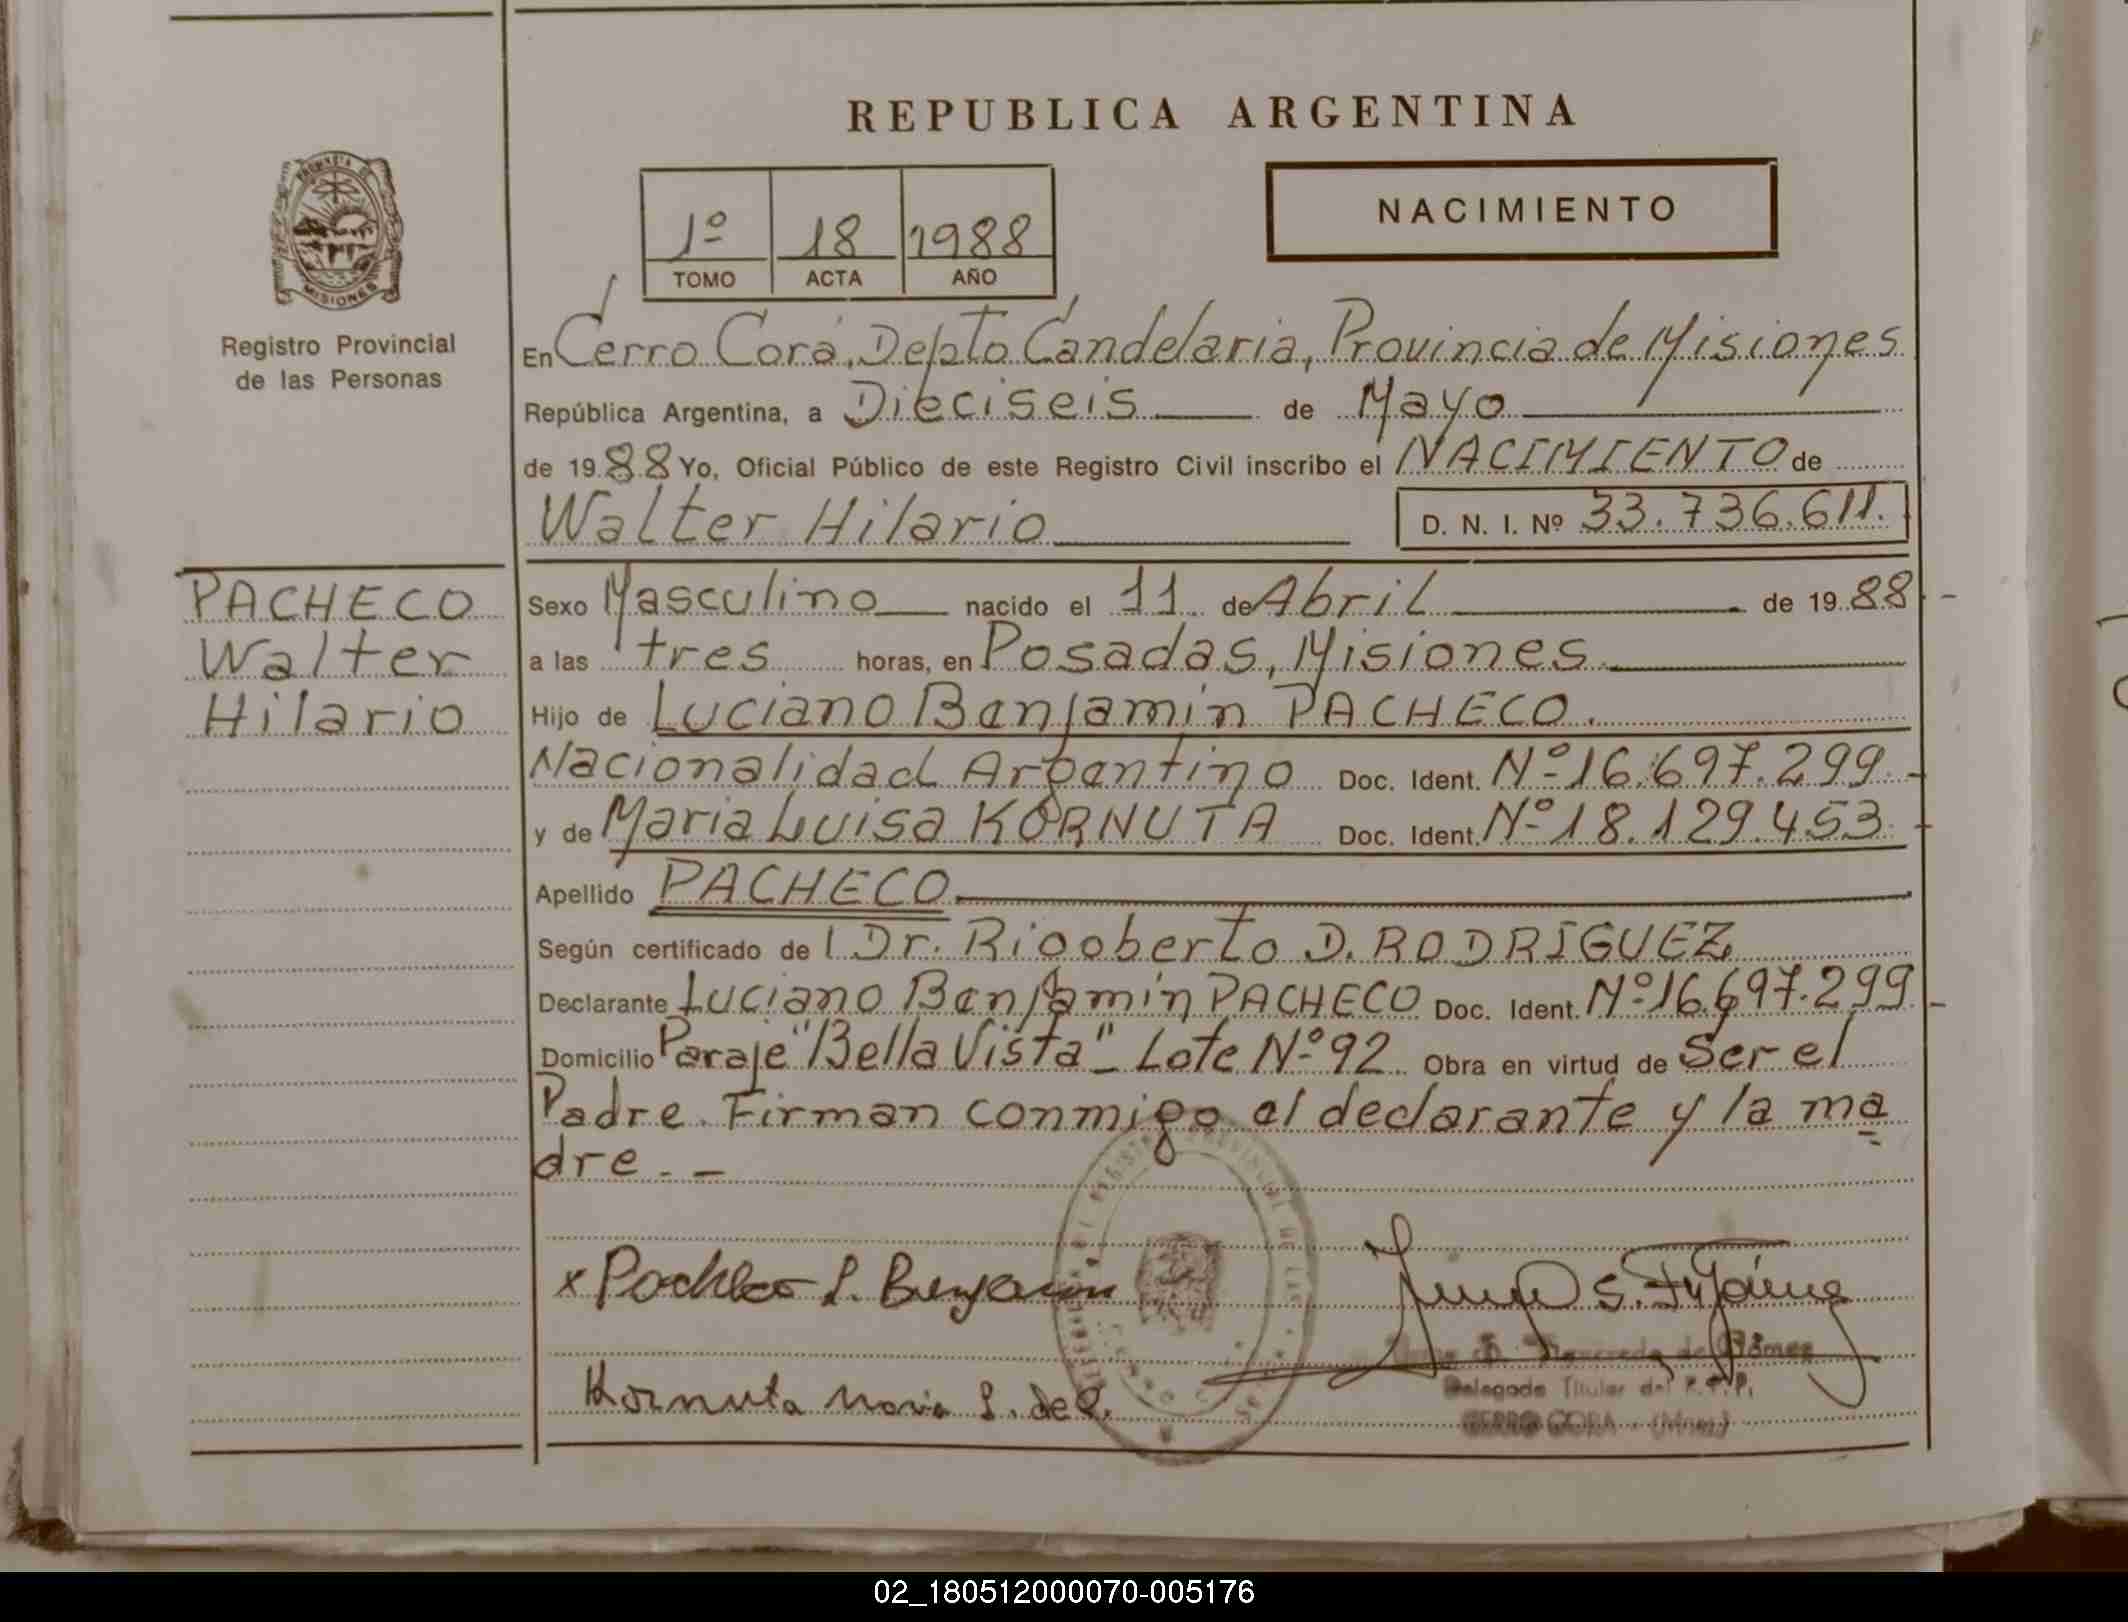 REPUBLICA ARGENTINA
PROVINCIA DE
MISIONES
Registro Provincial
de las Personas
1º 18 1988
TOMO ACTA AÑO
NACIMIENTO
En Cerro Corá, Depto Candelaria, Provincia de Misiones
República Argentina, a Dieciseis de Mayo
de 1988 Yo, Oficial Público de este Registro Civil inscribo el NACIMIENTO de
Walter Hilario D. N. I. Nº 33.736.611.
PACHECO
Walter
Hilario
Sexo Masculino nacido el 11 de Abril de 1988
a las tres horas, en Posadas, Misiones
Hijo de Luciano Benjamin PACHECO.
Nacionalidad Argentino Doc. Ident. Nº 16.697.299.-
y de Maria Luisa KORNUTA Doc. Ident. Nº 18.129.453.-
Apellido PACHECO
Según certificado de Dr. Rigoberto D. RODRIGUEZ
Declarante Luciano Benjamin PACHECO Doc. Ident. Nº 16.697.299.-
Domicilio Paraje "Bella Vista" - Lote Nº 92. Obra en virtud de Ser el
Padre. Firman conmigo el declarante y la ma
dre.-
x Pacheco L. Benjamin
Kornuta Maria L. de P.
de Gómez
Delegada Titular del R.P.P.
CERRO CORA - (Mnes)
02_180512000070-005176